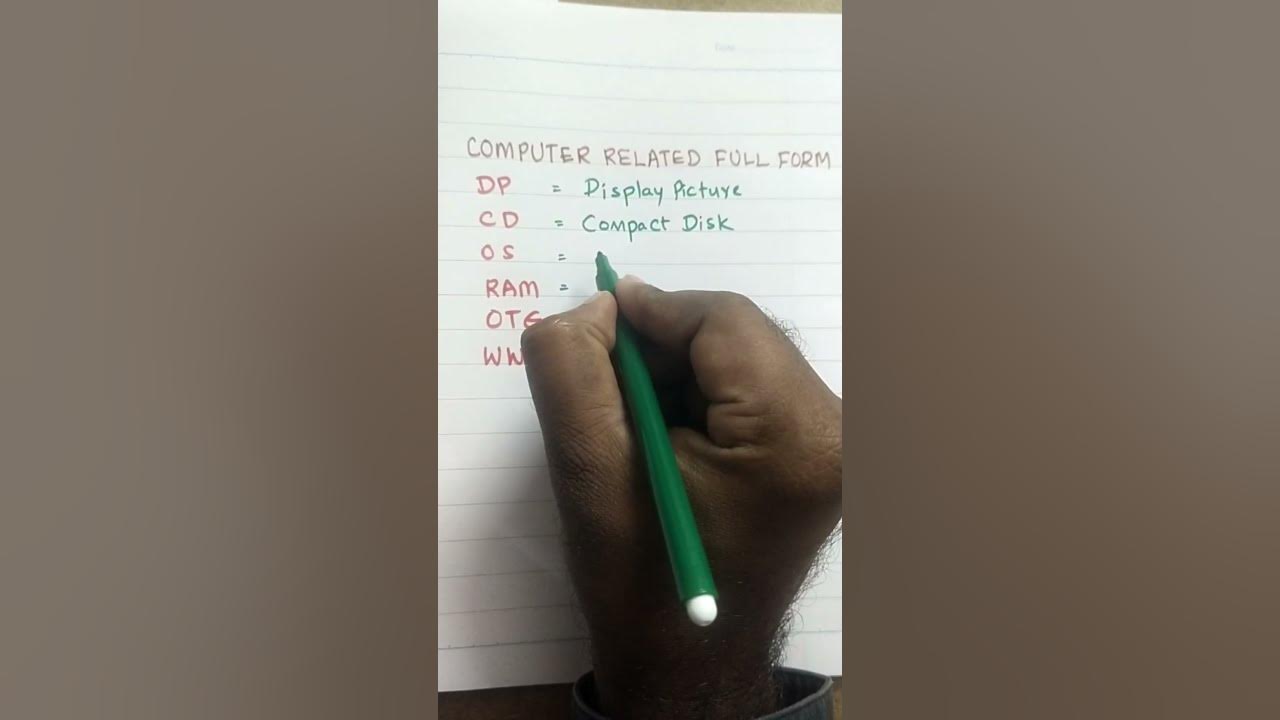 COMPUTER RELATED FULL FORM
DP = Display Picture
CD = Compact Disk
OS =
RAM =
OTG